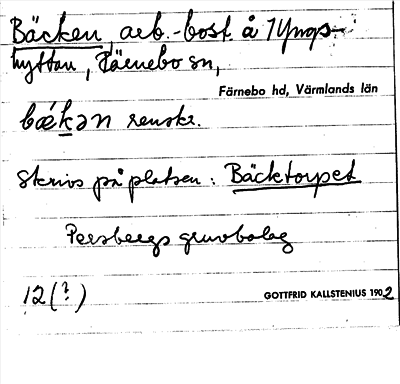 Bäcken, arb.-bost. å 1 Yngs-
hyttan, Färnebo sn,
Färnebo hd, Värmlands län
bǽkən renskr.
Skrivs på platsen: Bäcktorpet
Persbergs gruvbolag
12 (?)
GOTTFRID KALLSTENIUS 1902